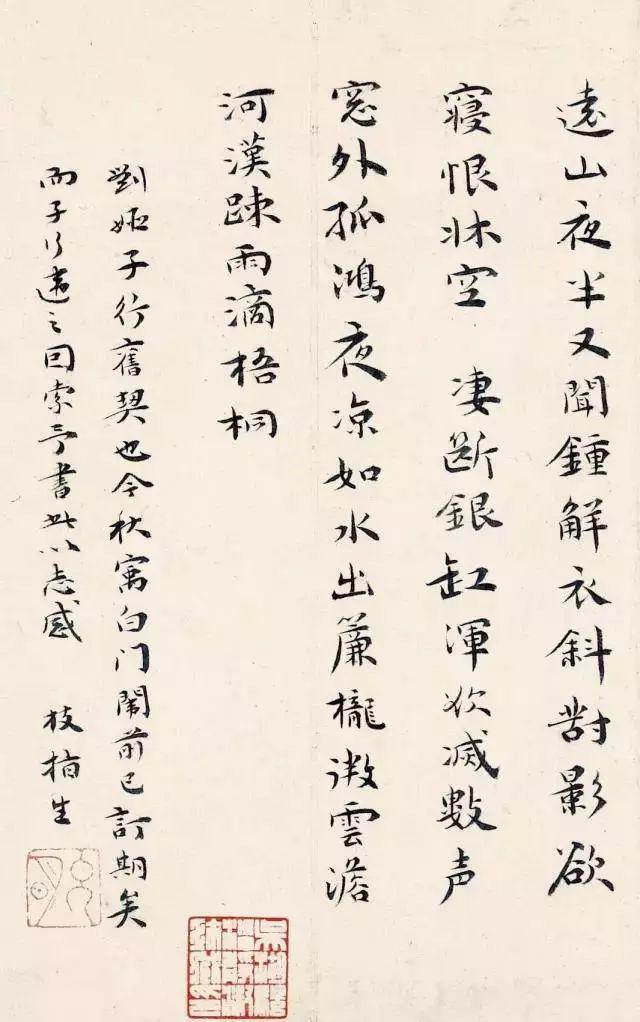 遠山夜半又聞鍾解衣斜對影欲
寢恨牀空 凄斷銀缸渾欲滅數声
窓外孤鴻夜凉如水出簾櫳微雲澹
河漢踈雨滴梧桐
劉姬子行舊契也今秋寓白门闈前已訂期矣
而子行違之回索予書此以志感 枝指生